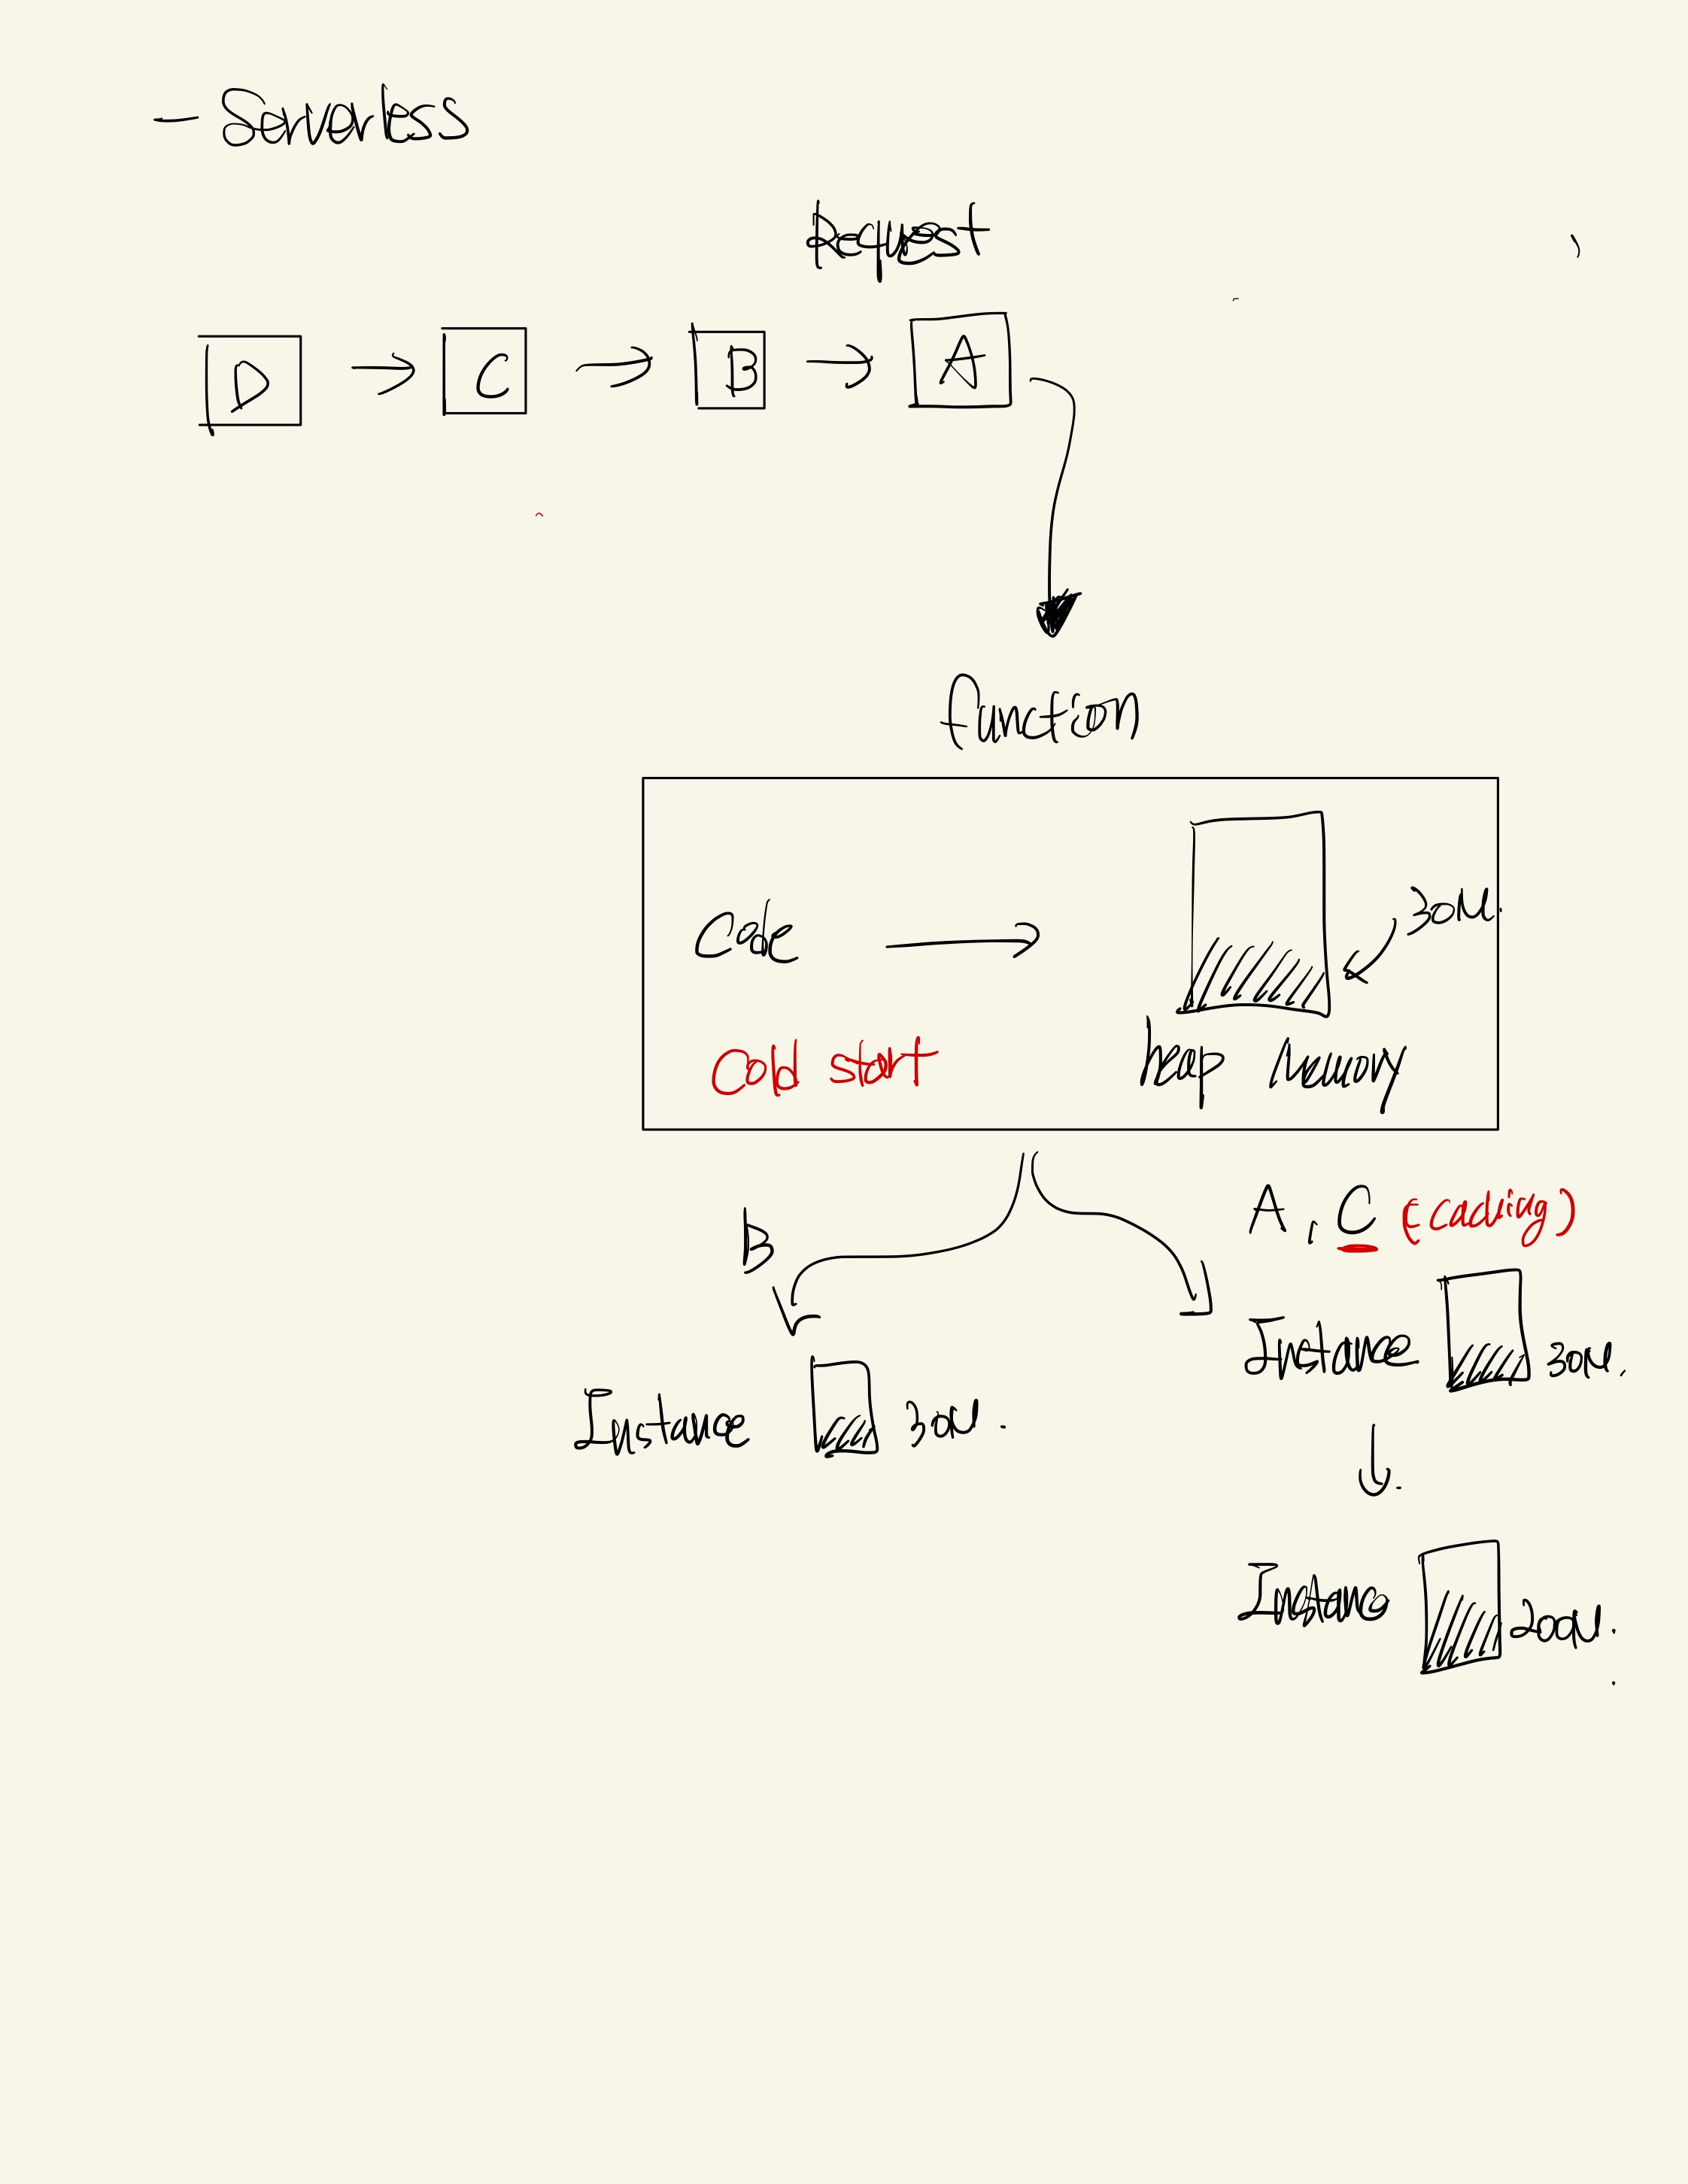 - Serverless
Request
D → C → B → A
function
Code →
30M.
Cold start
heap Memory
B
A, C (caching)
Instance 30M.
Instance 30M.
Instance 200M.